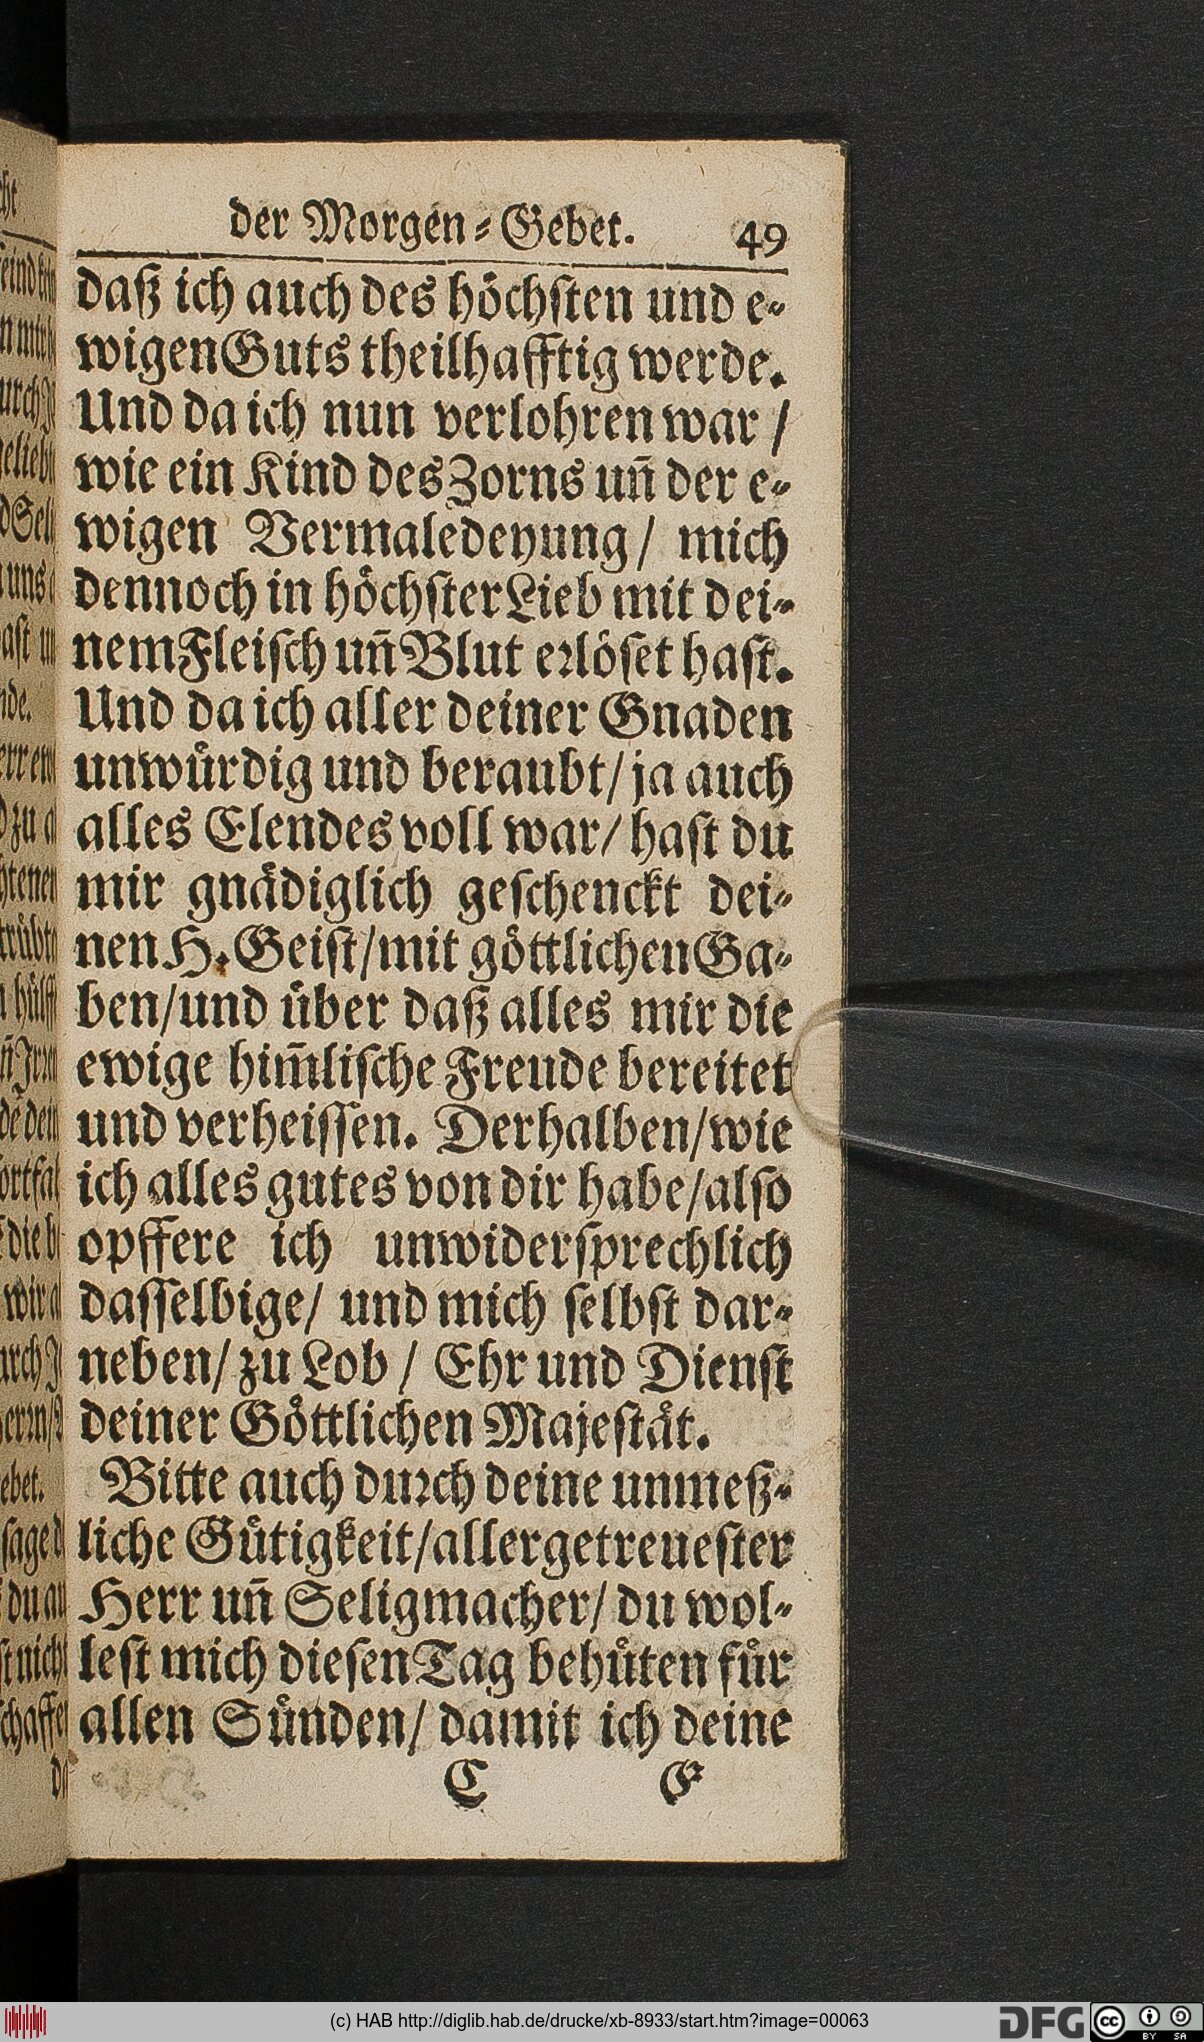 der Morgen-Gebet. 49
daß ich auch des höchsten und e-
wigen Guts theilhafftig werde.
Und da ich nun verlohren war /
wie ein Kind des Zorns uñ der e-
wigen Vermaledeyung / mich
dennoch in höchster Lieb mit dei-
nem Fleisch uñ Blut erlöset hast.
Und da ich aller deiner Gnaden
unwürdig und beraubt / ja auch
alles Elendes voll war / hast du
mir gnädiglich geschenckt dei-
nen H. Geist / mit göttlichen Ga-
ben / und über daß alles mir die
ewige him̃lische Freude bereitet
und verheissen. Derhalben / wie
ich alles gutes von dir habe / also
opffere ich unwidersprechlich
dasselbige / und mich selbst dar-
neben / zu Lob / Ehr und Dienst
deiner Göttlichen Majestät.
Bitte auch durch deine unmeß-
liche Gütigkeit / allergetreuester
Herr uñ Seligmacher / du wol-
lest mich diesen Tag behüten für
allen Sünden / damit ich deine
C E
(c) HAB http://diglib.hab.de/drucke/xb-8933/start.htm?image=00063
DFG
cc BY SA